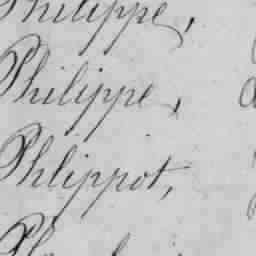 Philippe,
Philippe,
Phlippot,